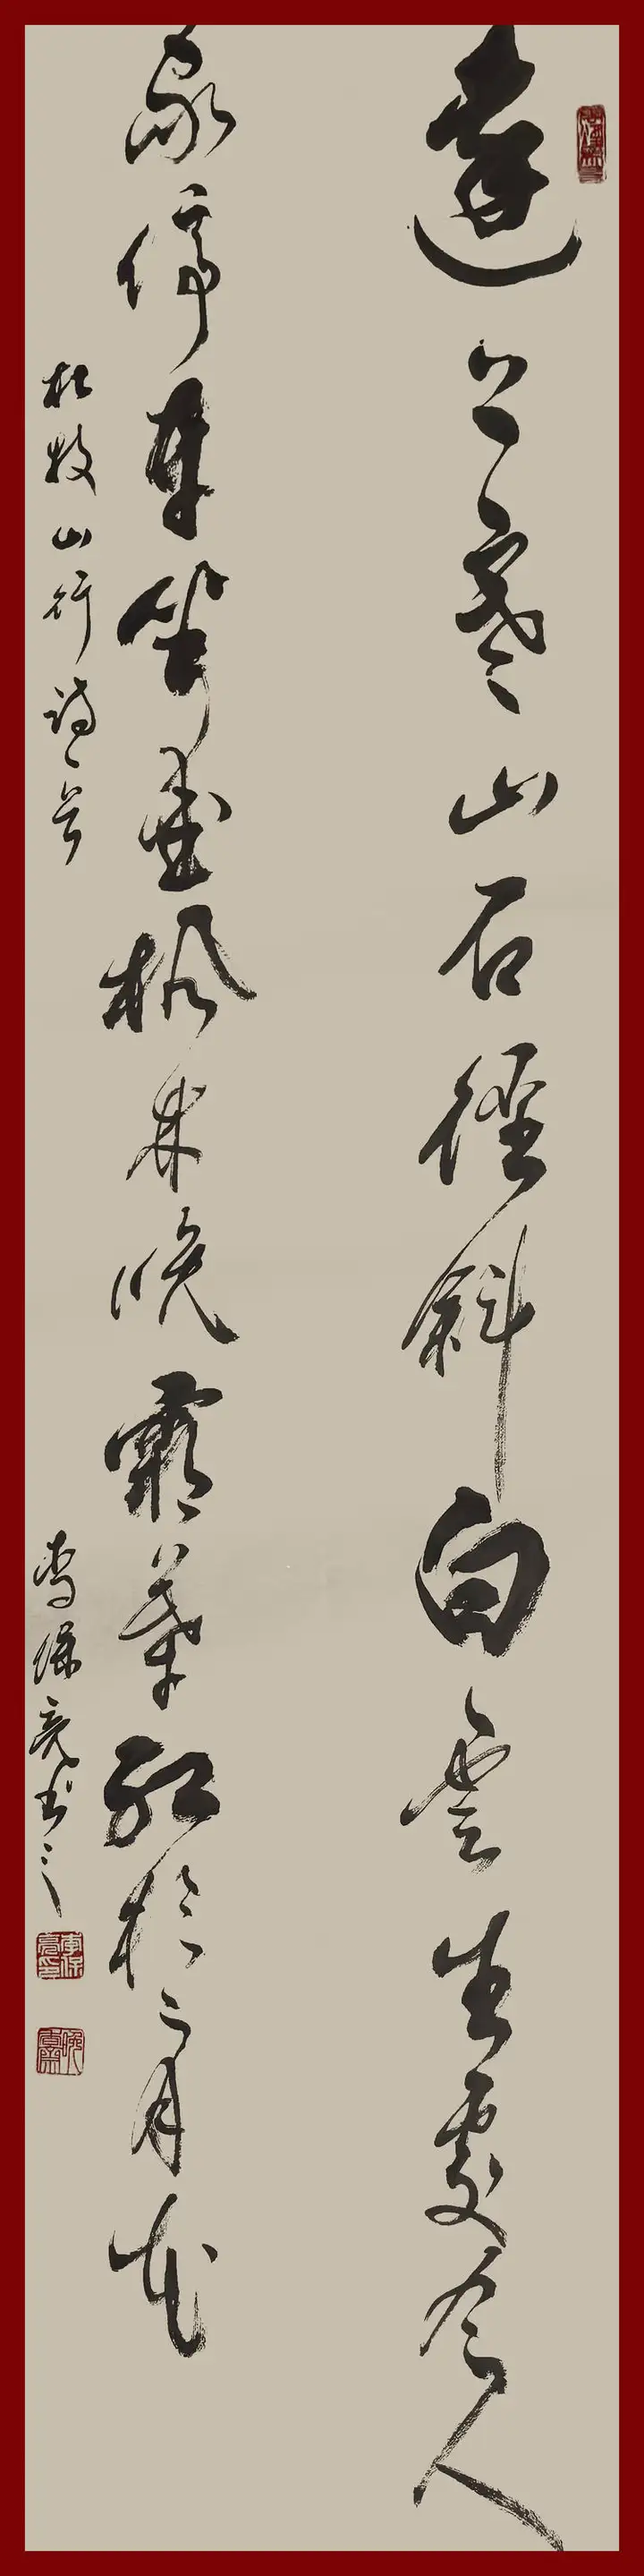 遠上寒山石徑斜白雲生處有人
家停車坐愛楓林晚霜葉紅於二月花
杜牧山行詩一首
李保亮书之
李保亮印